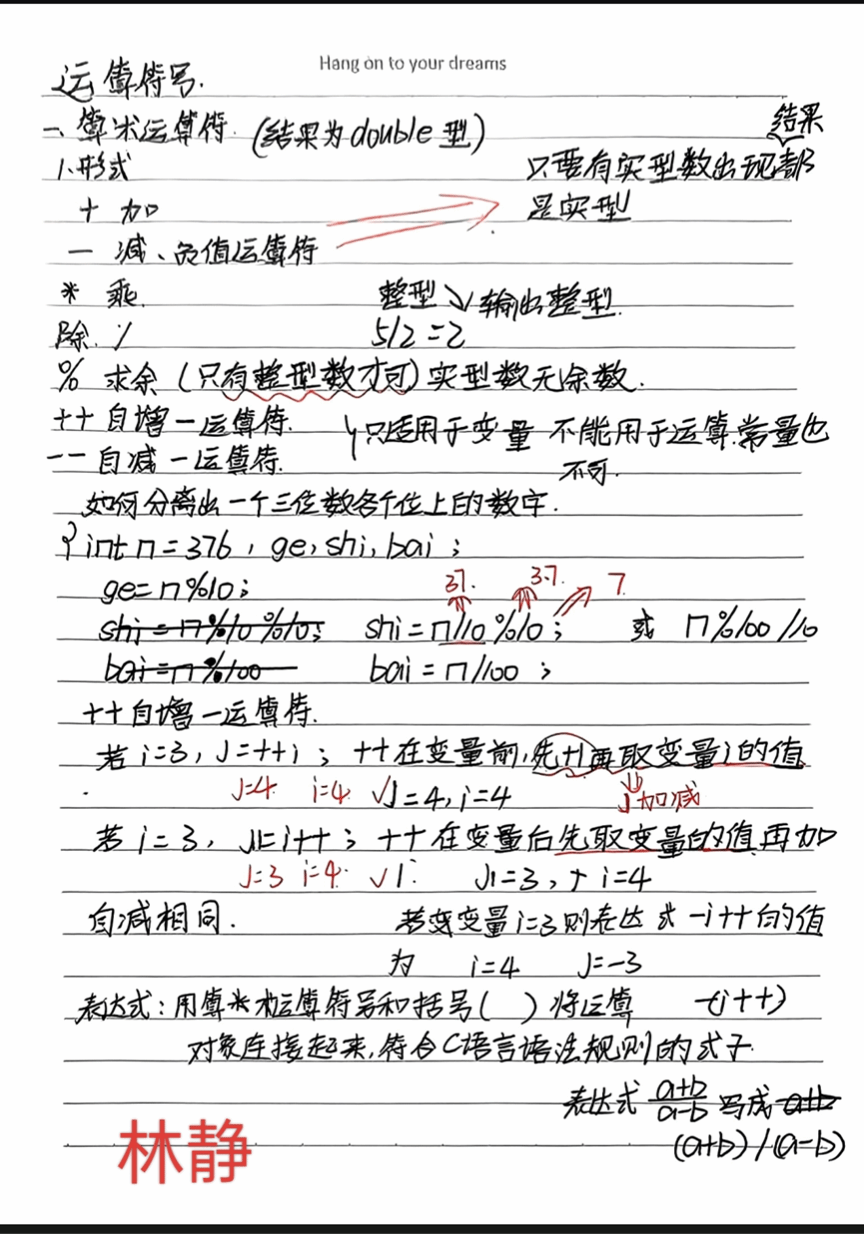 Hang on to your dreams
运算符号.
一、算术运算符.(结果为double型)
结果
1.形式 只要有实型数出现都
+ 加 是实型
一 减、负值运算符
* 乘. 整型↘输出整型.
除. / 5/2=2
% 求余(只有整型数才可)实型数无余数.
++自增一运算符. 只适用于变量 不能用于运算.常量也
--自减一运算符. 不可.
如何分离出一个三位数各个位上的数字.
{int n=376, ge, shi, bai;
37. 3.7. 7
ge=n%10;
shi=n%10%10; shi=n/10%10; 或 n%100/10
bai=n%100 bai=n/100;
++自增一运算符.
若i=3, J=++i; ++在变量前,先+1再取变量i的值
J=4. i=4. √J=4, i=4 j加减
若i=3, J1=i++; ++在变量后先取变量的值再加
J=3 i=4. √1. J1=3, i=4
自减相同. 若变变量i=3则表达式-i++的值
为 i=4 J=-3
表达式:用算术运算符号和括号( )将运算 -(i++)
对象连接起来,符合C语言语法规则的式子.
表达式 a+b/a-b 写成 a+b
(a+b)/(a-b)
林静